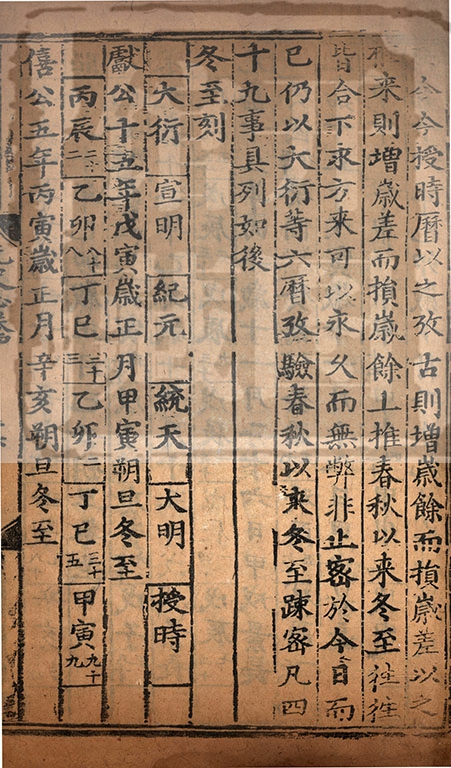 今今授時曆以之攷古則增歲餘而損歲差以之
来則增歲差而損歲餘上推春秋以来冬至往往
皆合下求方来可以永久而無弊非止密於今日而
已仍以大衍等六曆攷驗春秋以来冬至疎密凡四
十九事具列如後
冬至刻
大衍 宣明 紀元 統天 大明 授時
獻公十五年戊寅歲正月甲寅朔旦冬至
丙辰 乙卯八十八 丁巳二十三 乙卯二 丁巳三十五 甲寅九十九
僖公五年丙寅歲正月辛亥朔旦冬至